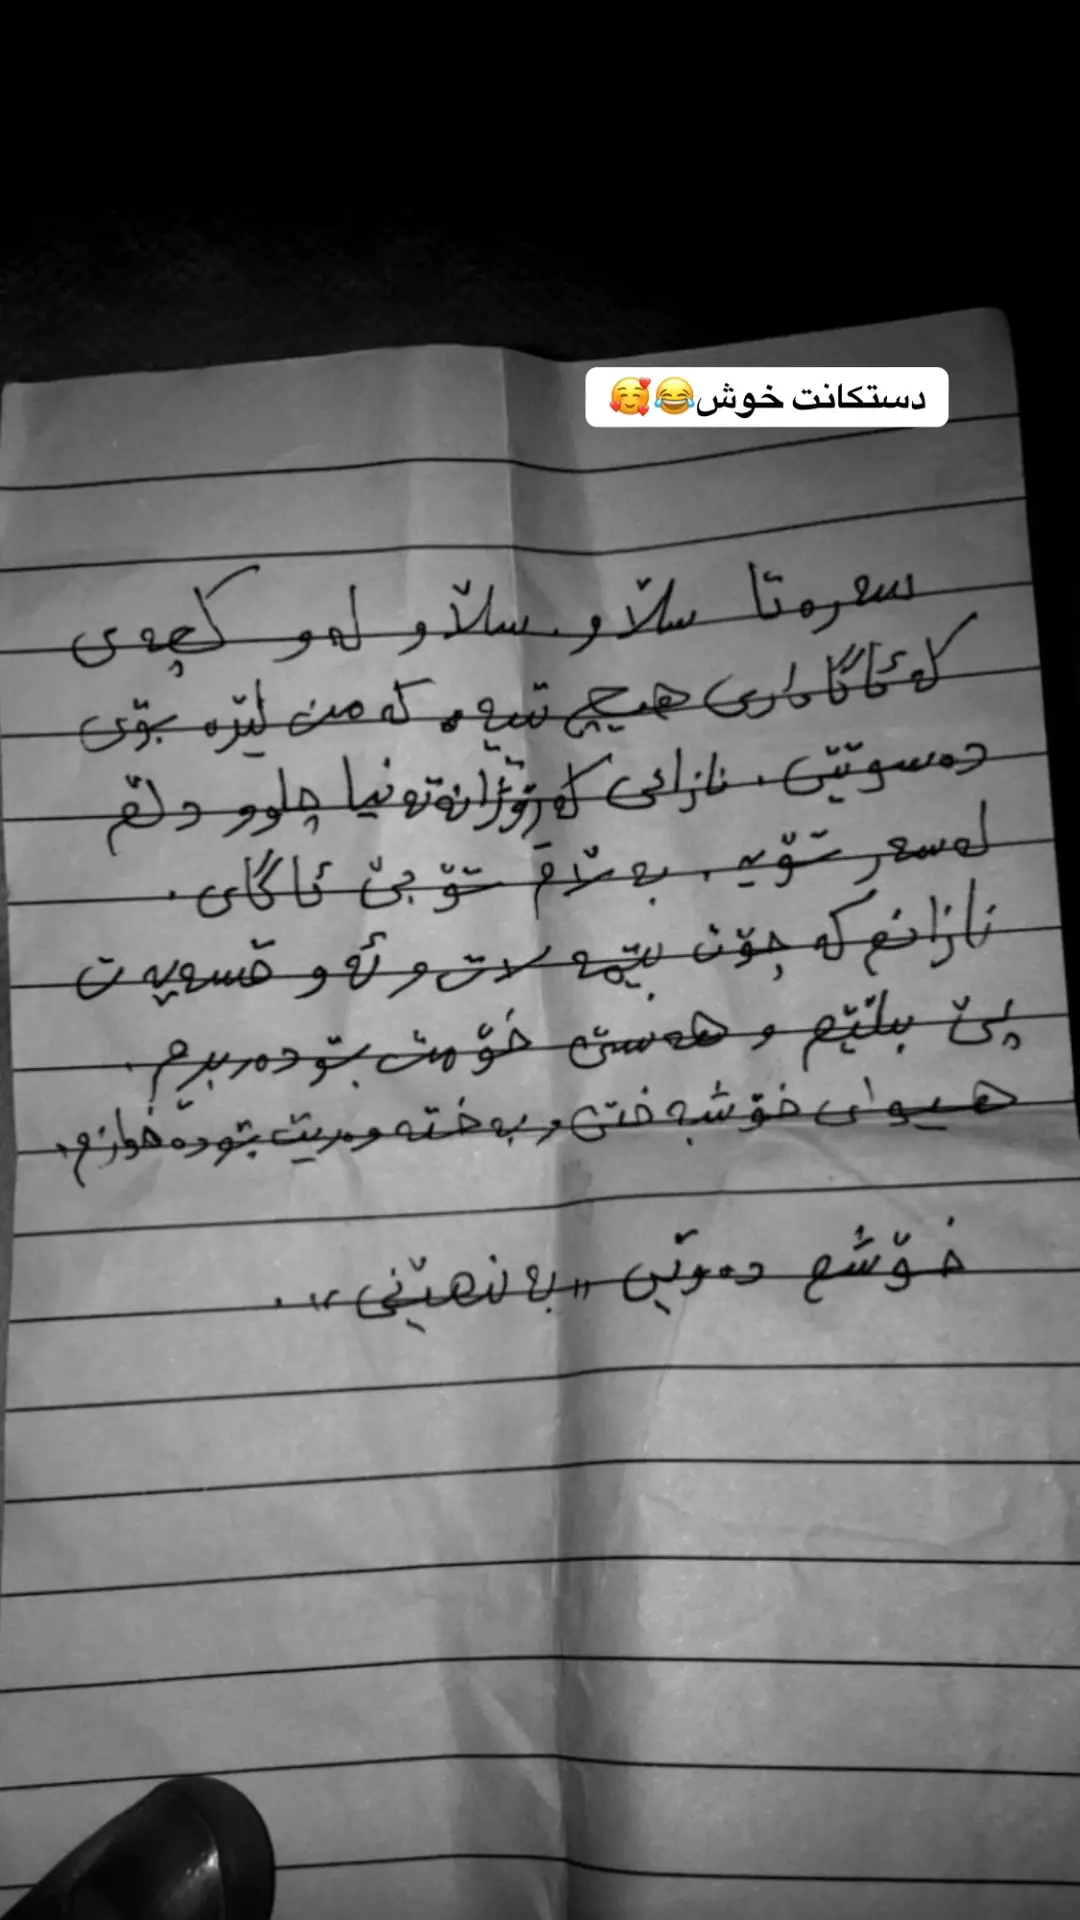 دستکانت خوش😂🥰
سەرەتا سڵاو. سڵاو لەو کچەی
کە ئاگاداری هیچ نییە. کە من لێرە بۆی
دەسوتێی. نازانی کە ڕۆژانە تەنیا چاوو دڵم
لەسەر تۆیە. بەڵام تۆ بێ ئاگای.
نازانم کە چۆن بێمە لات و ئەو قسەیەت
پێ بڵێم و هەستی خۆمت بۆ دەربڕم.
هیوای خۆشبەختی و بەختەوەریت بۆ دەخوازم.
خۆشم دەوێی "بە نهێنی".